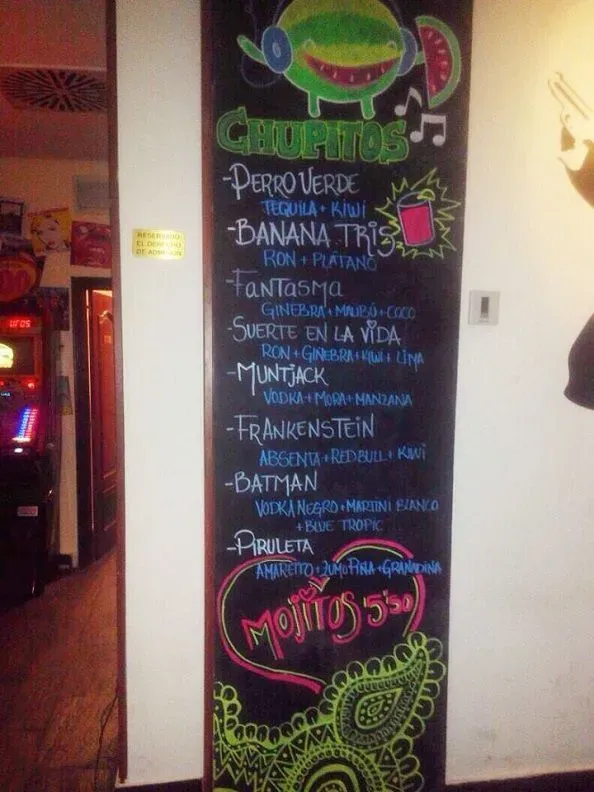 CHUPITOS
-PERRO VERDE
TEQUILA + KIWI
-BANANA TRIS
RON + PLÁTANO
-FANTASMA
GINEBRA + MALIBÚ + COCO
-SUERTE EN LA VIDA
RON + GINEBRA + KIWI + LIMA
-MUNTJACK
VODKA + MORA + MANZANA
-FRANKENSTEIN
ABSENTA + REDBULL + KIWI
-BATMAN
VODKA NEGRO + MARTINI BLANCO
+ BLUE TROPIC
-PIRULETA
AMARETTO + ZUMO PIÑA + GRANADINA
MOJITOS 5'50
RESERVADO
EL DERECHO
DE ADMISIÓN